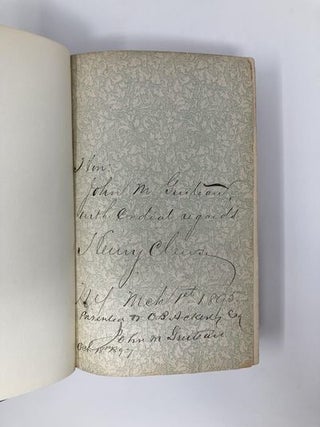 Hon:
John M
with Cordial regards
Henry Clews
N Y Mch 1st 1895
Presented to C B Ackerly Esq
John M
Oct 1897